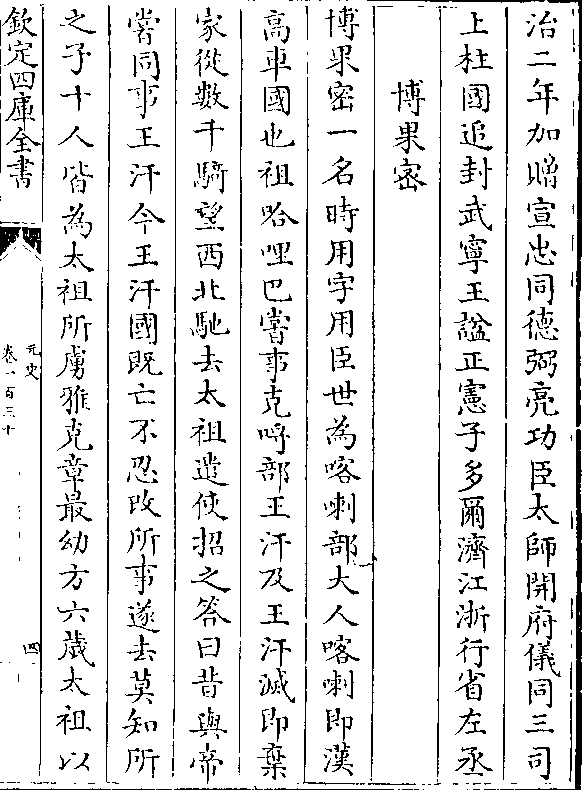 治二年加贈宣忠同德弼亮功臣太師開府儀同三司
上柱國追封武寧王諡正憲子多爾濟江浙行省左丞
博果密
博果密一名時用字用臣世為喀喇部大人喀喇即漢
高車國也祖哈哩巴嘗事克哷部王汗及王汗滅即棄
家從數千騎望西北馳去太祖遣使招之答曰昔與帝
嘗同事王汗今王汗國既亡不忍改所事遂去莫知所
之子十人皆為太祖所虜雅克章最幼方六歲太祖以
欽定四庫全書
元史
卷一百三十
四